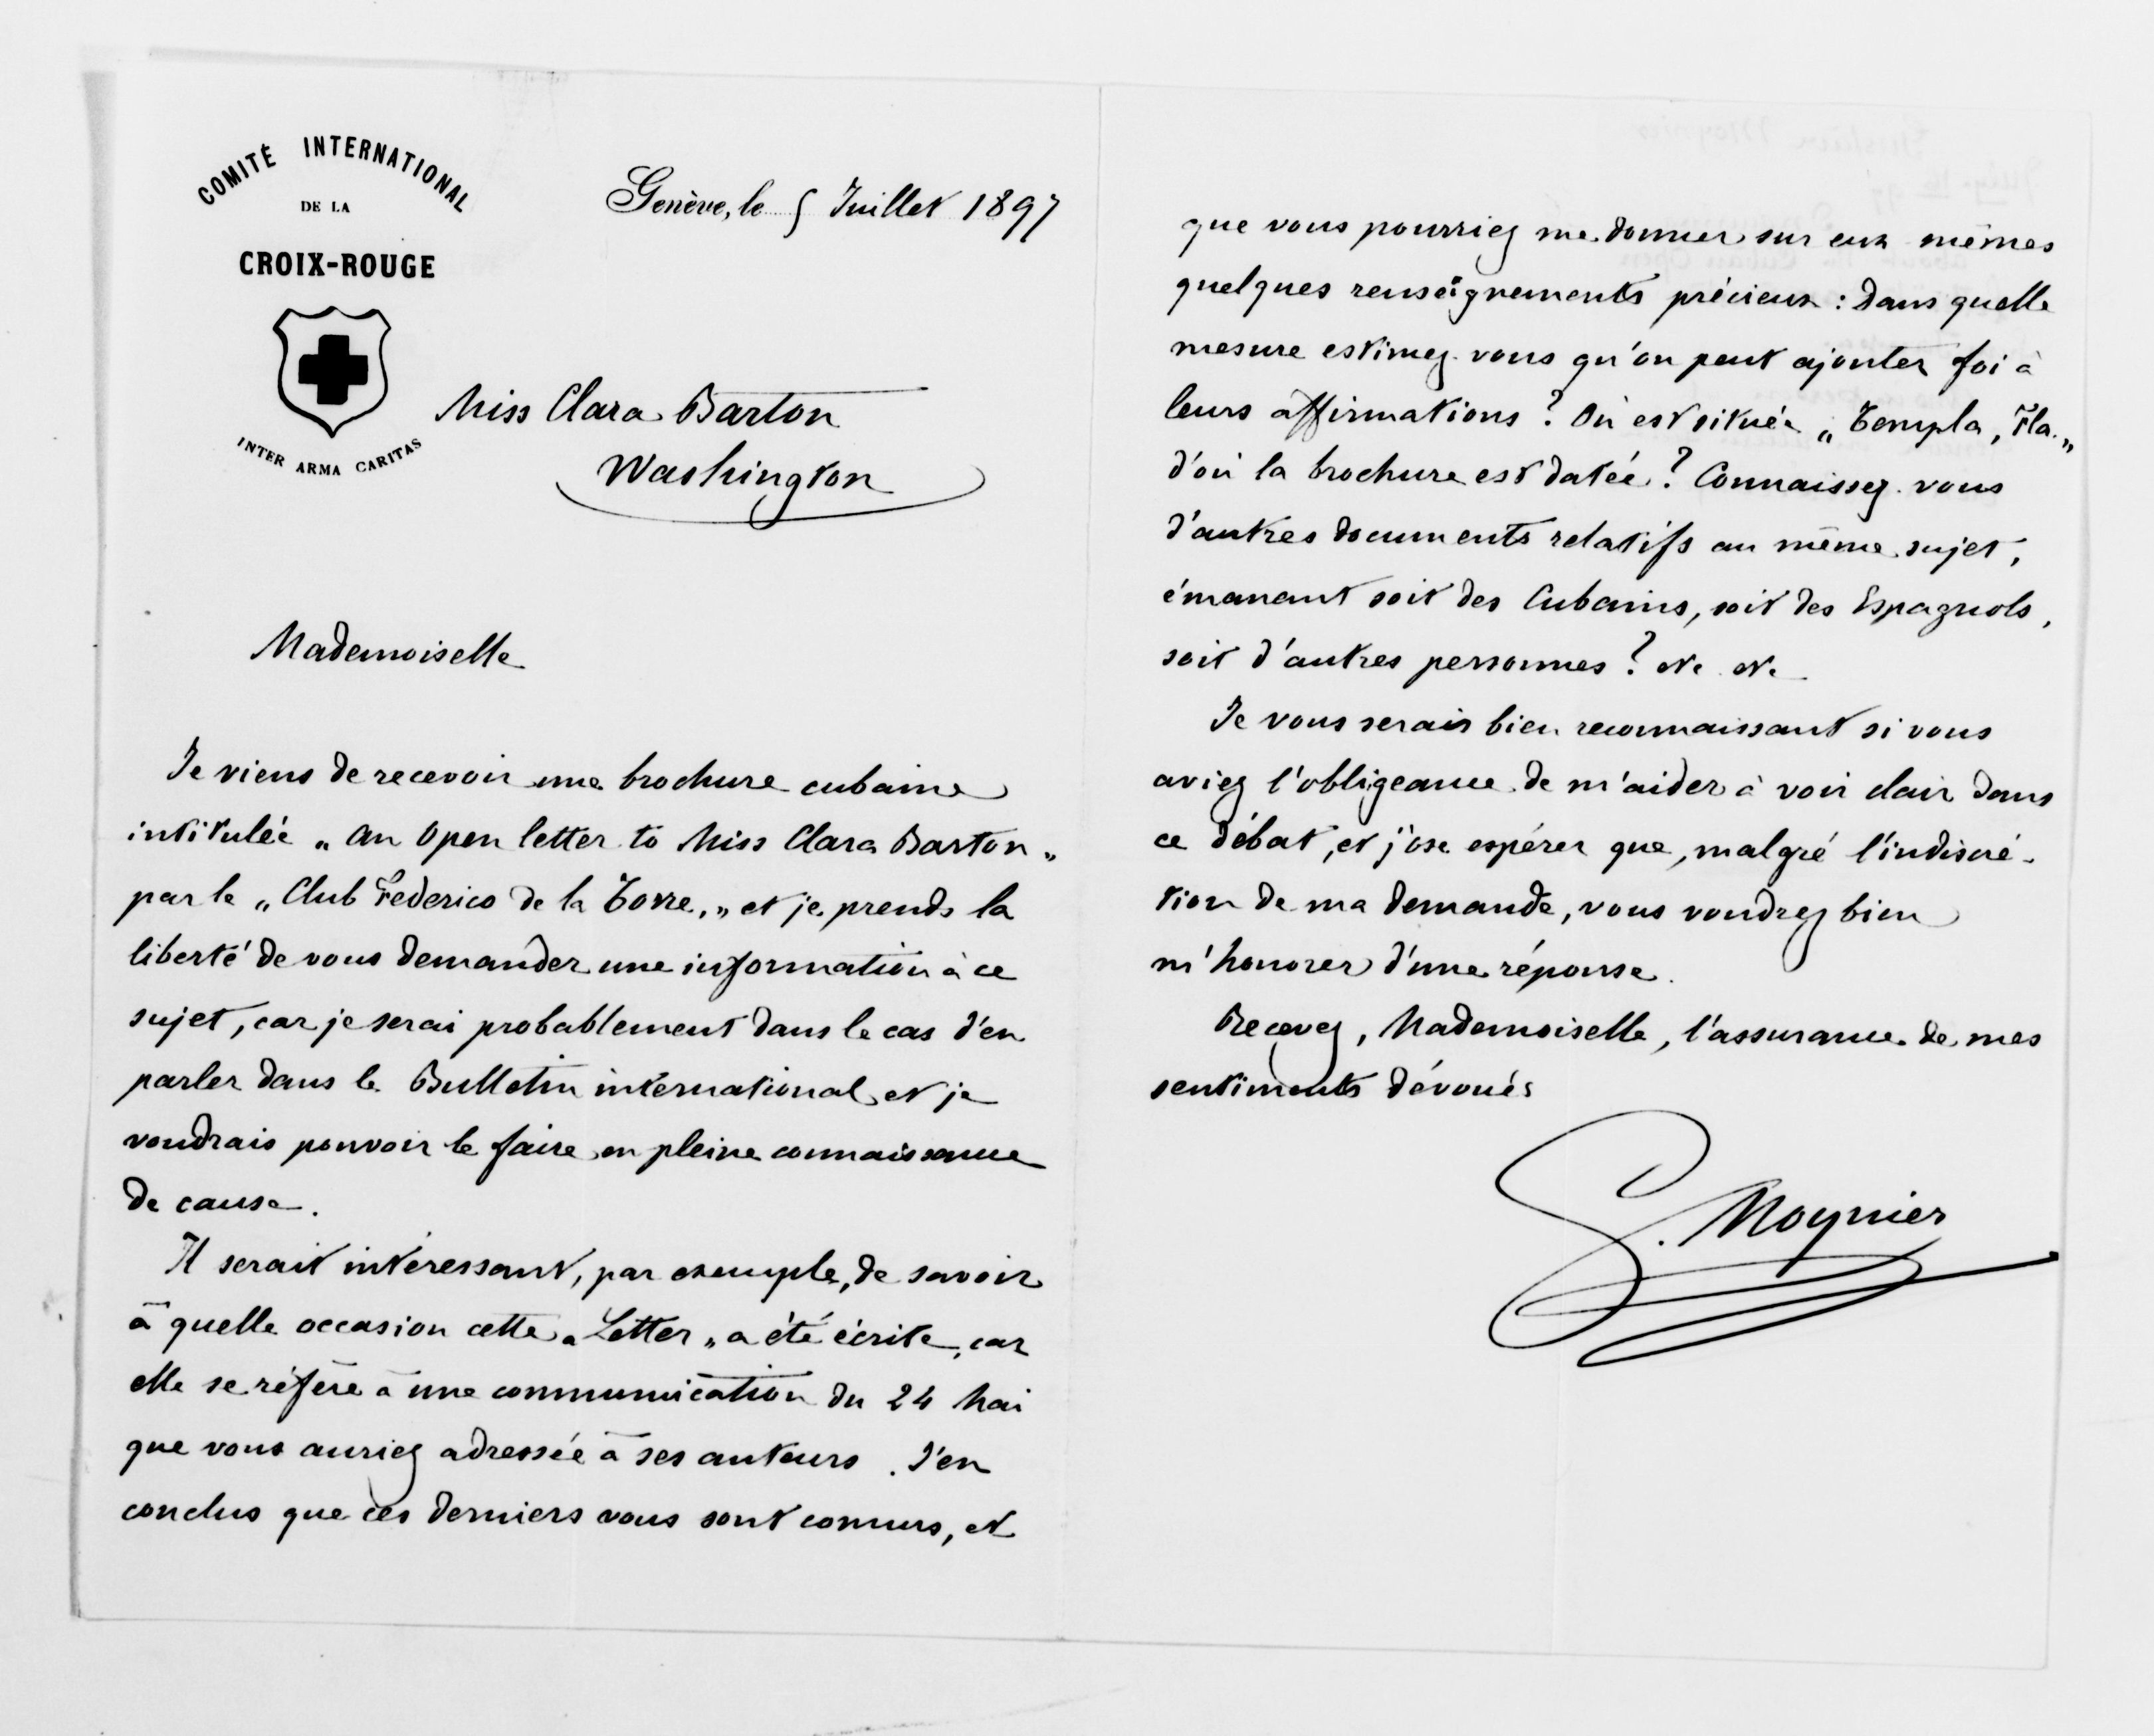 COMITÉ INTERNATIONAL
DE LA
CROIX-ROUGE
INTER ARMA CARITAS
Genève, le 5 Juillet 1897
Miss Clara Barton
Washington
Mademoiselle
Je viens de recevoir une brochure cubaine
intitulée „ An Open letter to Miss Clara Barton „
par le „ Club Federico de la Torre, „ et je prends la
liberté de vous demander une information à ce
sujet, car je serai probablement dans le cas d'en
parler dans le Bulletin international et je
voudrais pouvoir le faire en pleine connaissance
de cause.
Il serait intéressant, par exemple, de savoir
à quelle occasion cette „ Letter „ a été écrite, car
elle se réfère à une communication du 24 Mai
que vous auriez adressée à ses auteurs. J'en
conclus que ces derniers vous sont connus, et
que vous pourriez me donner sur eux mêmes
quelques renseignements précieux : Dans quelle
mesure estimez-vous qu'on peut ajouter foi à
leurs affirmations ? Où est située „ Templa, Fla. „
d'où la brochure est datée ? Connaissez-vous
d'autres documents relatifs au même sujet,
émanant soit des Cubains, soit des Espagnols,
soit d'autres personnes ? etc. etc.
Je vous serais bien reconnaissant si vous
aviez l'obligeance de m'aider à voir clair dans
ce débat, et j'ose espérer que, malgré l'indiscré-
tion de ma demande, vous voudrez bien
m'honorer d'une réponse.
Recevez, Mademoiselle, l'assurance de mes
sentiments dévoués
G. Moynier